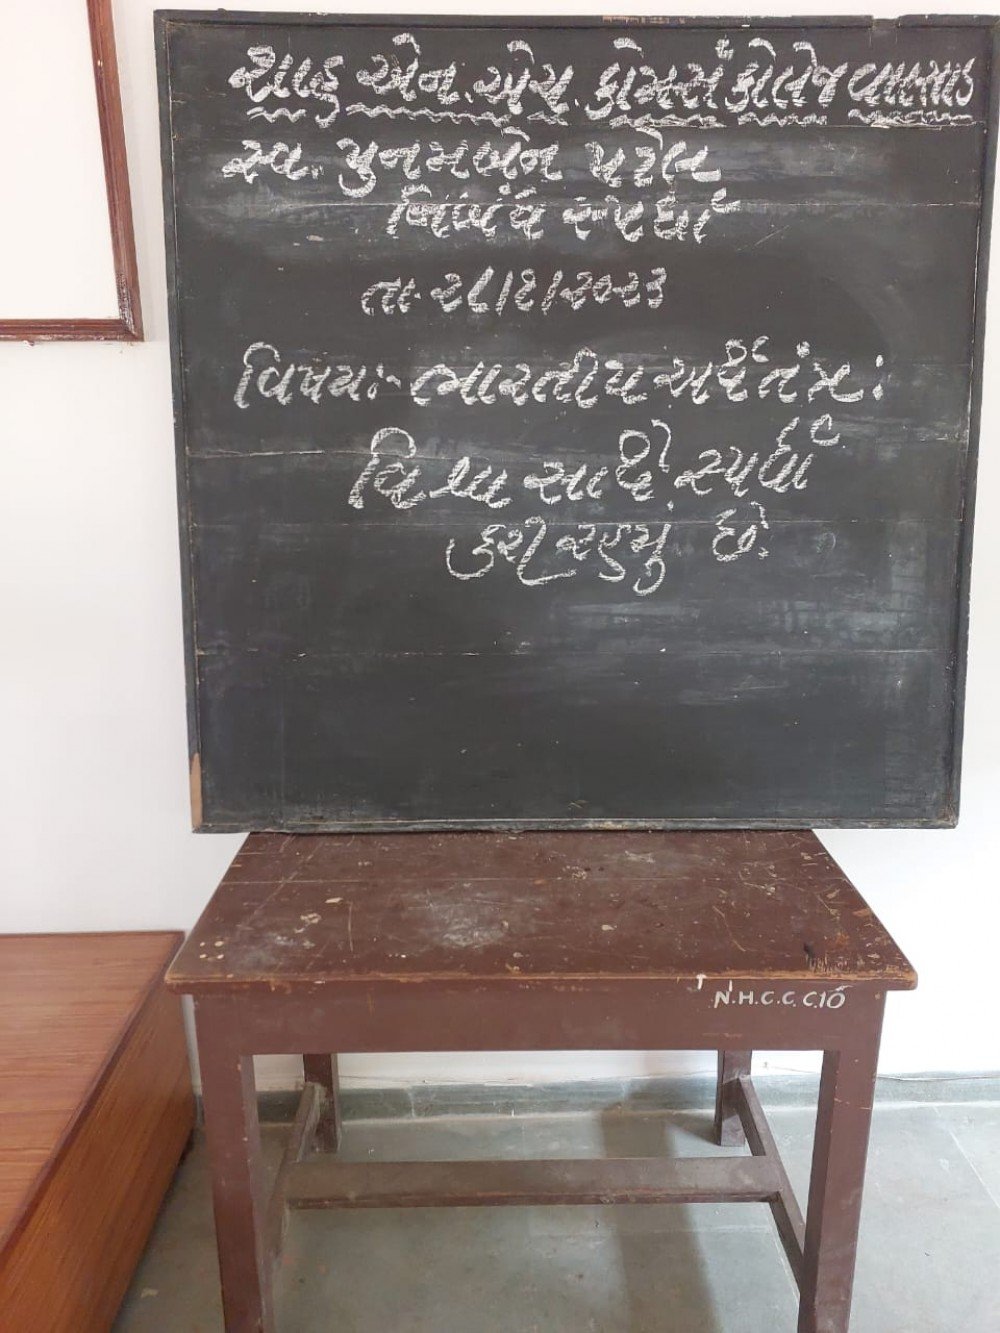 શાહ એન. એચ. કોમર્સ કોલેજ વાલસાડ
સ્વ. પુનમબેન પટેલ
નિબંધ સ્પર્ધા
તા. ૨૮/૨/૨૦૨૩
વિષયઃ- ભારતીય અર્થતંત્ર :
વિશ્વ સાથે સ્પર્ધા
કરી રહ્યું છે.
N.H.C.C. C.10